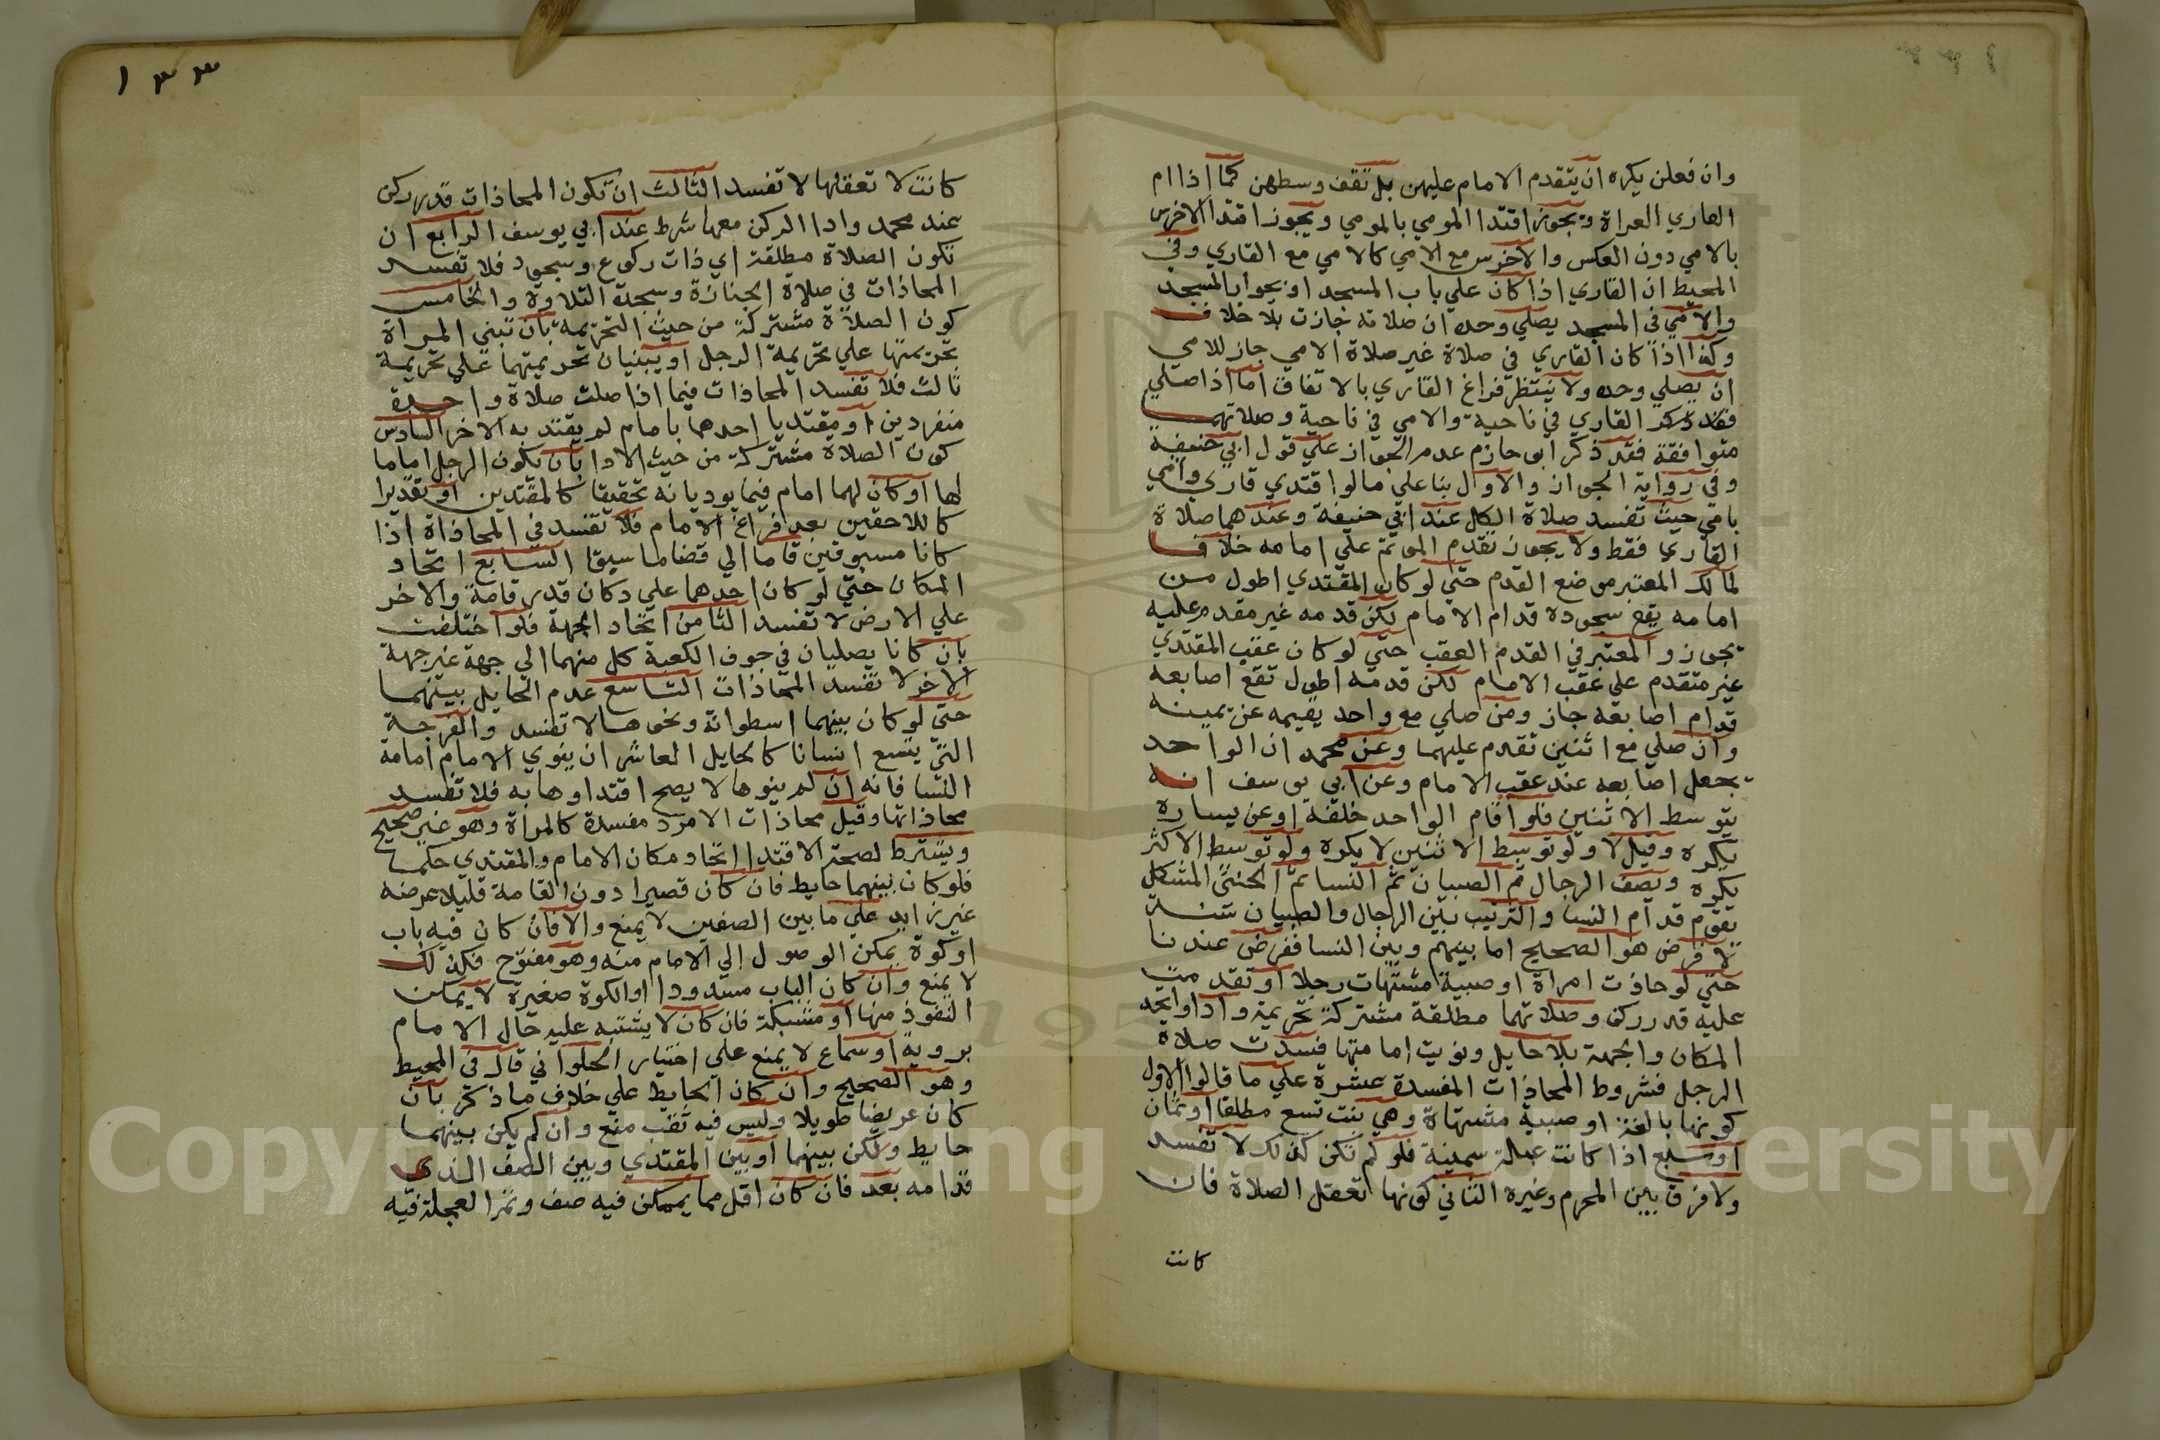 وان فعلن يكره ان يتقدم الامام عليهن بل تقف وسطهن كما اذا ام
العاري العراة ويجوز اقتدا المومي بالمومي ويجوز اقتدا الاخرس
بالامي دون العكس والاخرس مع الامي كالامي مع القاري وفي
المحيط ان القاري اذا كان علي باب المسجد او بجوار المسجد
والامي في المسجد يصلي وحده ان صلاته جازت بلا خلاف
وكذا اذا كان القاري في صلاة غير صلاة الامي جاز للامي
ان يصلي وحده ولا ينتظر فراغ القاري بالاتفاق اما اذا صلي
القاري في ناحية والامي في ناحية وصلاتهما
متوافقة فقد ذكر ابو حازم عدم الجواز علي قول ابي حنيفة
وفي رواية الجواز والاول بنا علي ما لو اقتدي قاري وامي
بامي حيث تفسد صلاة الكل عند ابي حنيفة وعندهما صلاة
القاري فقط ولا يجوز تقدم الموتم علي امامه خلافا
لمالك المعتبر موضع القدم حتي لو كان المقتدي اطول من
امامه يقع سجوده قدام الامام لكن قدمه غير مقدم عليه
يجوز والمعتبر في القدم العقب حتي لو كان عقب المقتدي
غير متقدم علي عقب الامام لكن قدمه اطول تقع اصابعه
قدام اصابعه جاز ومن صلي مع واحد يقيمه عن يمينه
وان صلي مع اثنين تقدم عليهما وعن محمد ان الواحد
يجعل اصابعه عند عقب الامام وعن ابي يوسف انه
يتوسط الاثنين فلو اقام الواحد خلفه او عن يساره
يكره وقيل لا ولو توسط الاثنين لا يكره ولو توسط الاكثر
يكره ويصف الرجال ثم الصبيان ثم النسا ثم الخنثي المشكل
تقوم قدام النسا والترتيب بين الرجال والصبيان سنة
لا فرض هو الصحيح اما بينهم وبين النسا ففرض عندنا
حتي لو حاذت امراة او صبية مشتهات رجلا او تقدمت
عليه قدر ركن وصلاتهما مطلقة مشتركة تحريمة وادا واتحد
المكان والجهة بلا حايل ونويت امامتها فسدت صلاة
الرجل فشروط المحاذات المفسدة عشرة علي ما قالوا الاول
كونها بالغة او صبية مشتهاة وهي بنت تسع مطلقا او ثمان
او سبع اذا كانت عبلة سمينة فلو لم تكن كذلك لا تفسد
ولا فرق بين المحرم وغيره الثاني كونها تعقل الصلاة فان
كانت
١٣٣
كانت لا تعقلها لا تفسد الثالث ان تكون المحاذات قدر ركن
عند محمد وادا الركن معها شرط عند ابي يوسف الرابع ان
تكون الصلاة مطلقة اي ذات ركوع وسجود فلا تفسد
المحاذات في صلاة الجنازة وسجدة التلاوة والخامس
كون الصلاة مشتركة من حيث التحريمة بان تبني المراة
تحريمتها علي تحريمة الرجل او يبنيان تحريمتهما علي تحريمة
ثالث فلا تفسد المحاذات فيما اذا صلت صلاة واحدة
منفردين او مقتديا احدهما بامام لم يقتد به الاخر السادس
كون الصلاة مشتركة من حيث الادا بان يكون الرجل اماما
لها او كان لهما امام فيما يوديانه تحقيقا كالمقتدين او تقديرا
كاللاحقين بعد فراغ الامام فلا تفسد في المحاذاة اذا
كانا مسبوقين قاما الي قضا ما سبقا السابع اتحاد
المكان حتي لو كان احدهما علي دكان قدر قامة والاخر
علي الارض لا تفسد الثامن اتحاد الجهة فلو اختلفت
بان كانا يصليان في جوف الكعبة كل منهما الي جهة غير جهة
الاخر لا تفسد المحاذات التاسع عدم الحايل بينهما
حتي لو كان بينهما اسطوانة ونحوها لا تفسد والفرجة
التي يسع انسانا كالحايل العاشر ان ينوي الامام امامة
النسا فانه ان لم ينوها لا يصح اقتداوها به فلا تفسد
محاذاتها وقيل محاذات الامرد مفسدة كالمراة وهو غير صحيح
ويشترط لصحة الاقتدا اتحاد مكان الامام والمقتدي حكما
فلو كان بينهما حايط فان كان قصيرا دون القامة قليلا عرضه
غير زايد علي ما بين الصفين لا يمنع والا فان كان فيه باب
او كوة يمكن الوصول الي الامام منه وهو مفتوح فكذلك
لا يمنع وان كان الباب مسدودا او الكوة صغيرة لا يمكن
النفوذ منها او مشبكة فان كان لا يشتبه عليه حال الامام
بروية او سماع لا يمنع علي اختيار الحلواني قال في المحيط
وهو الصحيح وان كان الحايط علي خلاف ما ذكر بان
كان عريضا طويلا وليس فيه ثقب منع وان لم يكن بينهما
حايط ولكن بينهما او بين المقتدي وبين الصف الذي
قدامه بعد فان كان اقل مما يمكن فيه صف وتمر العجلة فيه
Copyright © King Saud University
1957